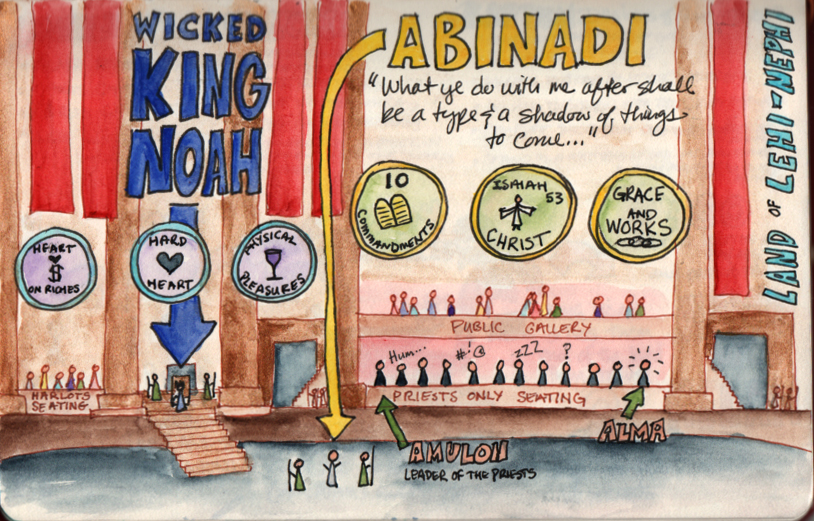 WICKED
KING
NOAH
ABINADI
"What ye do with me after shall
be a type & a shadow of things
to come..."
LAND OF LEHI-NEPHI
HEART
$
ON RICHES
HARD
HEART
PHYSICAL
PLEASURES
10
COMMANDMENTS
ISAIAH
53
CHRIST
GRACE
AND
WORKS
PUBLIC GALLERY
Hum...
#!@
zZZ
?
HARLOTS
SEATING
PRIESTS ONLY SEATING
ALMA
AMULON
LEADER OF THE PRIESTS